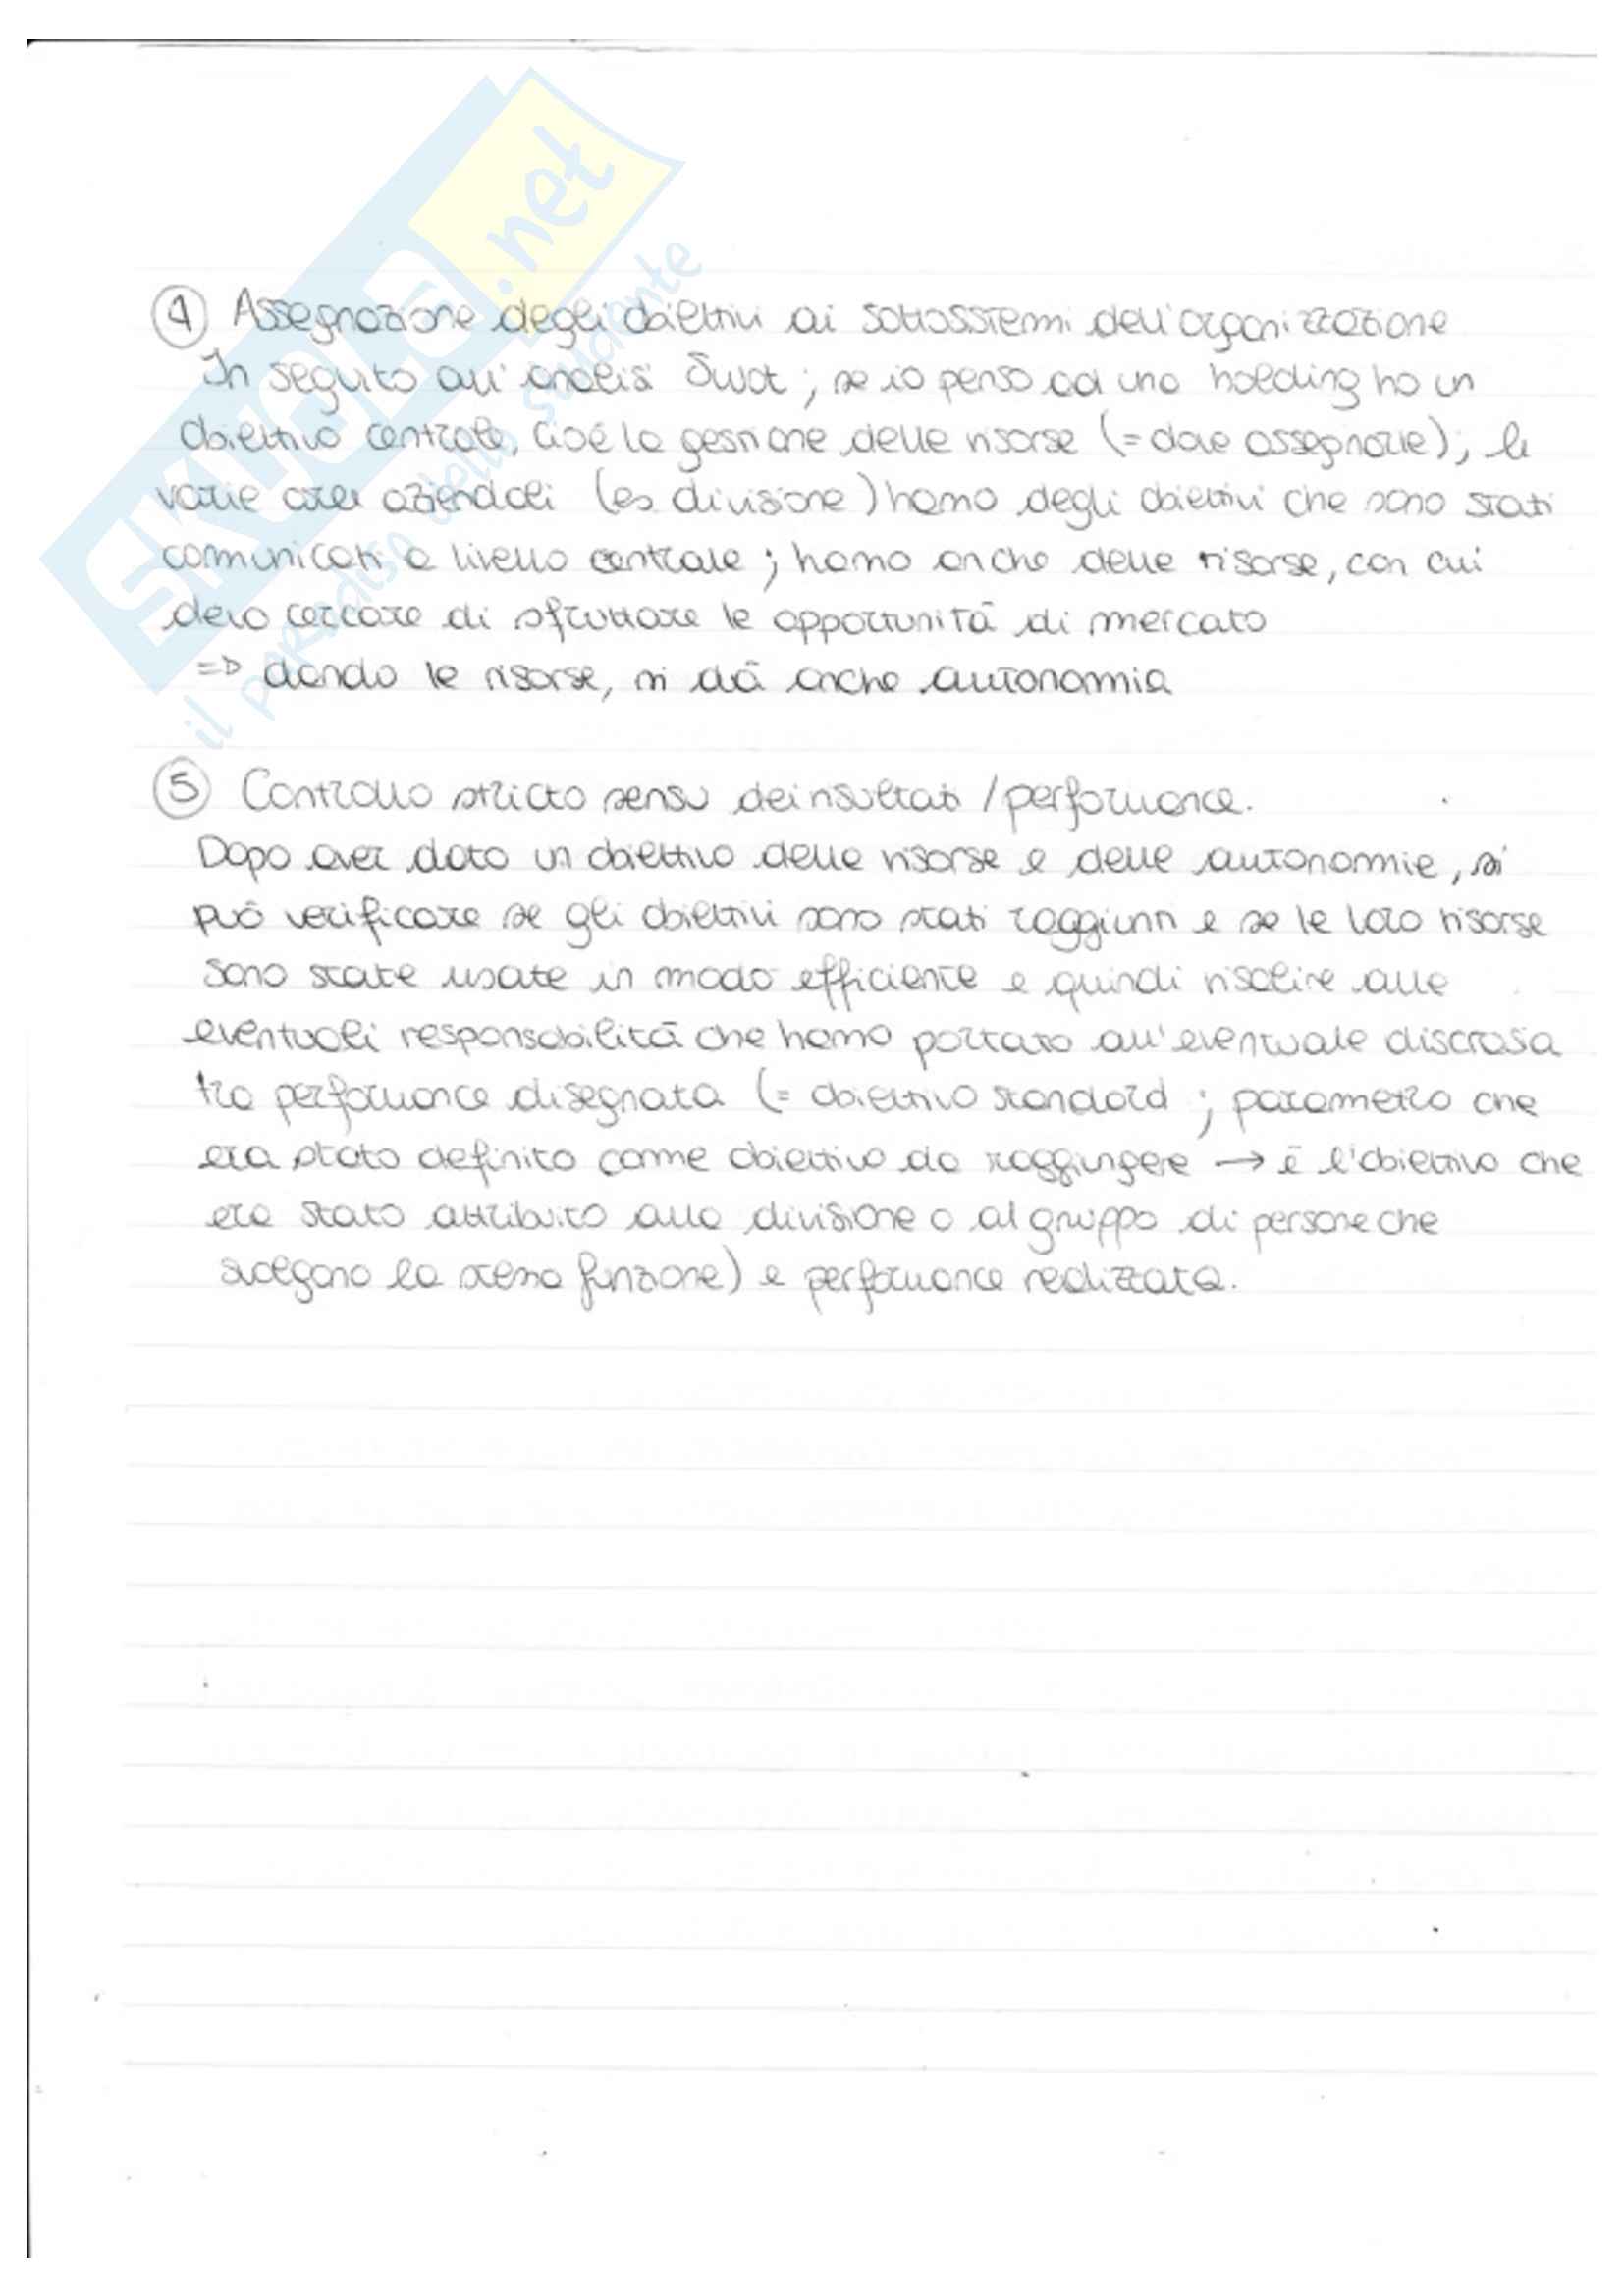 SKUOLA.net
il paradiso dello studente
④ Assegnazione degli obiettivi ai sottosistemi dell'organizzazione
In seguito all'analisi Swot ; se io penso ad una holding ho un
obiettivo centrale, cioè la gestione delle risorse (= dove assegnarle); le
varie aree aziendali (es divisione) hanno degli obiettivi che sono stati
comunicati a livello centrale ; hanno anche delle risorse, con cui
devo cercare di sfruttare le opportunità di mercato
=> dando le risorse, si dà anche autonomia
⑤ Controllo stricto sensu dei risultati / performance.
Dopo aver dato un obiettivo delle risorse e delle autonomie, si
può verificare se gli obiettivi sono stati raggiunti e se le loro risorse
sono state usate in modo efficiente e quindi risalire alle
eventuali responsabilità che hanno portato all'eventuale discrasia
tra performance disegnata (= obiettivo standard ; parametro che
era stato definito come obiettivo da raggiungere → è l'obiettivo che
era stato attribuito alla divisione o al gruppo di persone che
svolgono la stessa funzione) e performance realizzata.